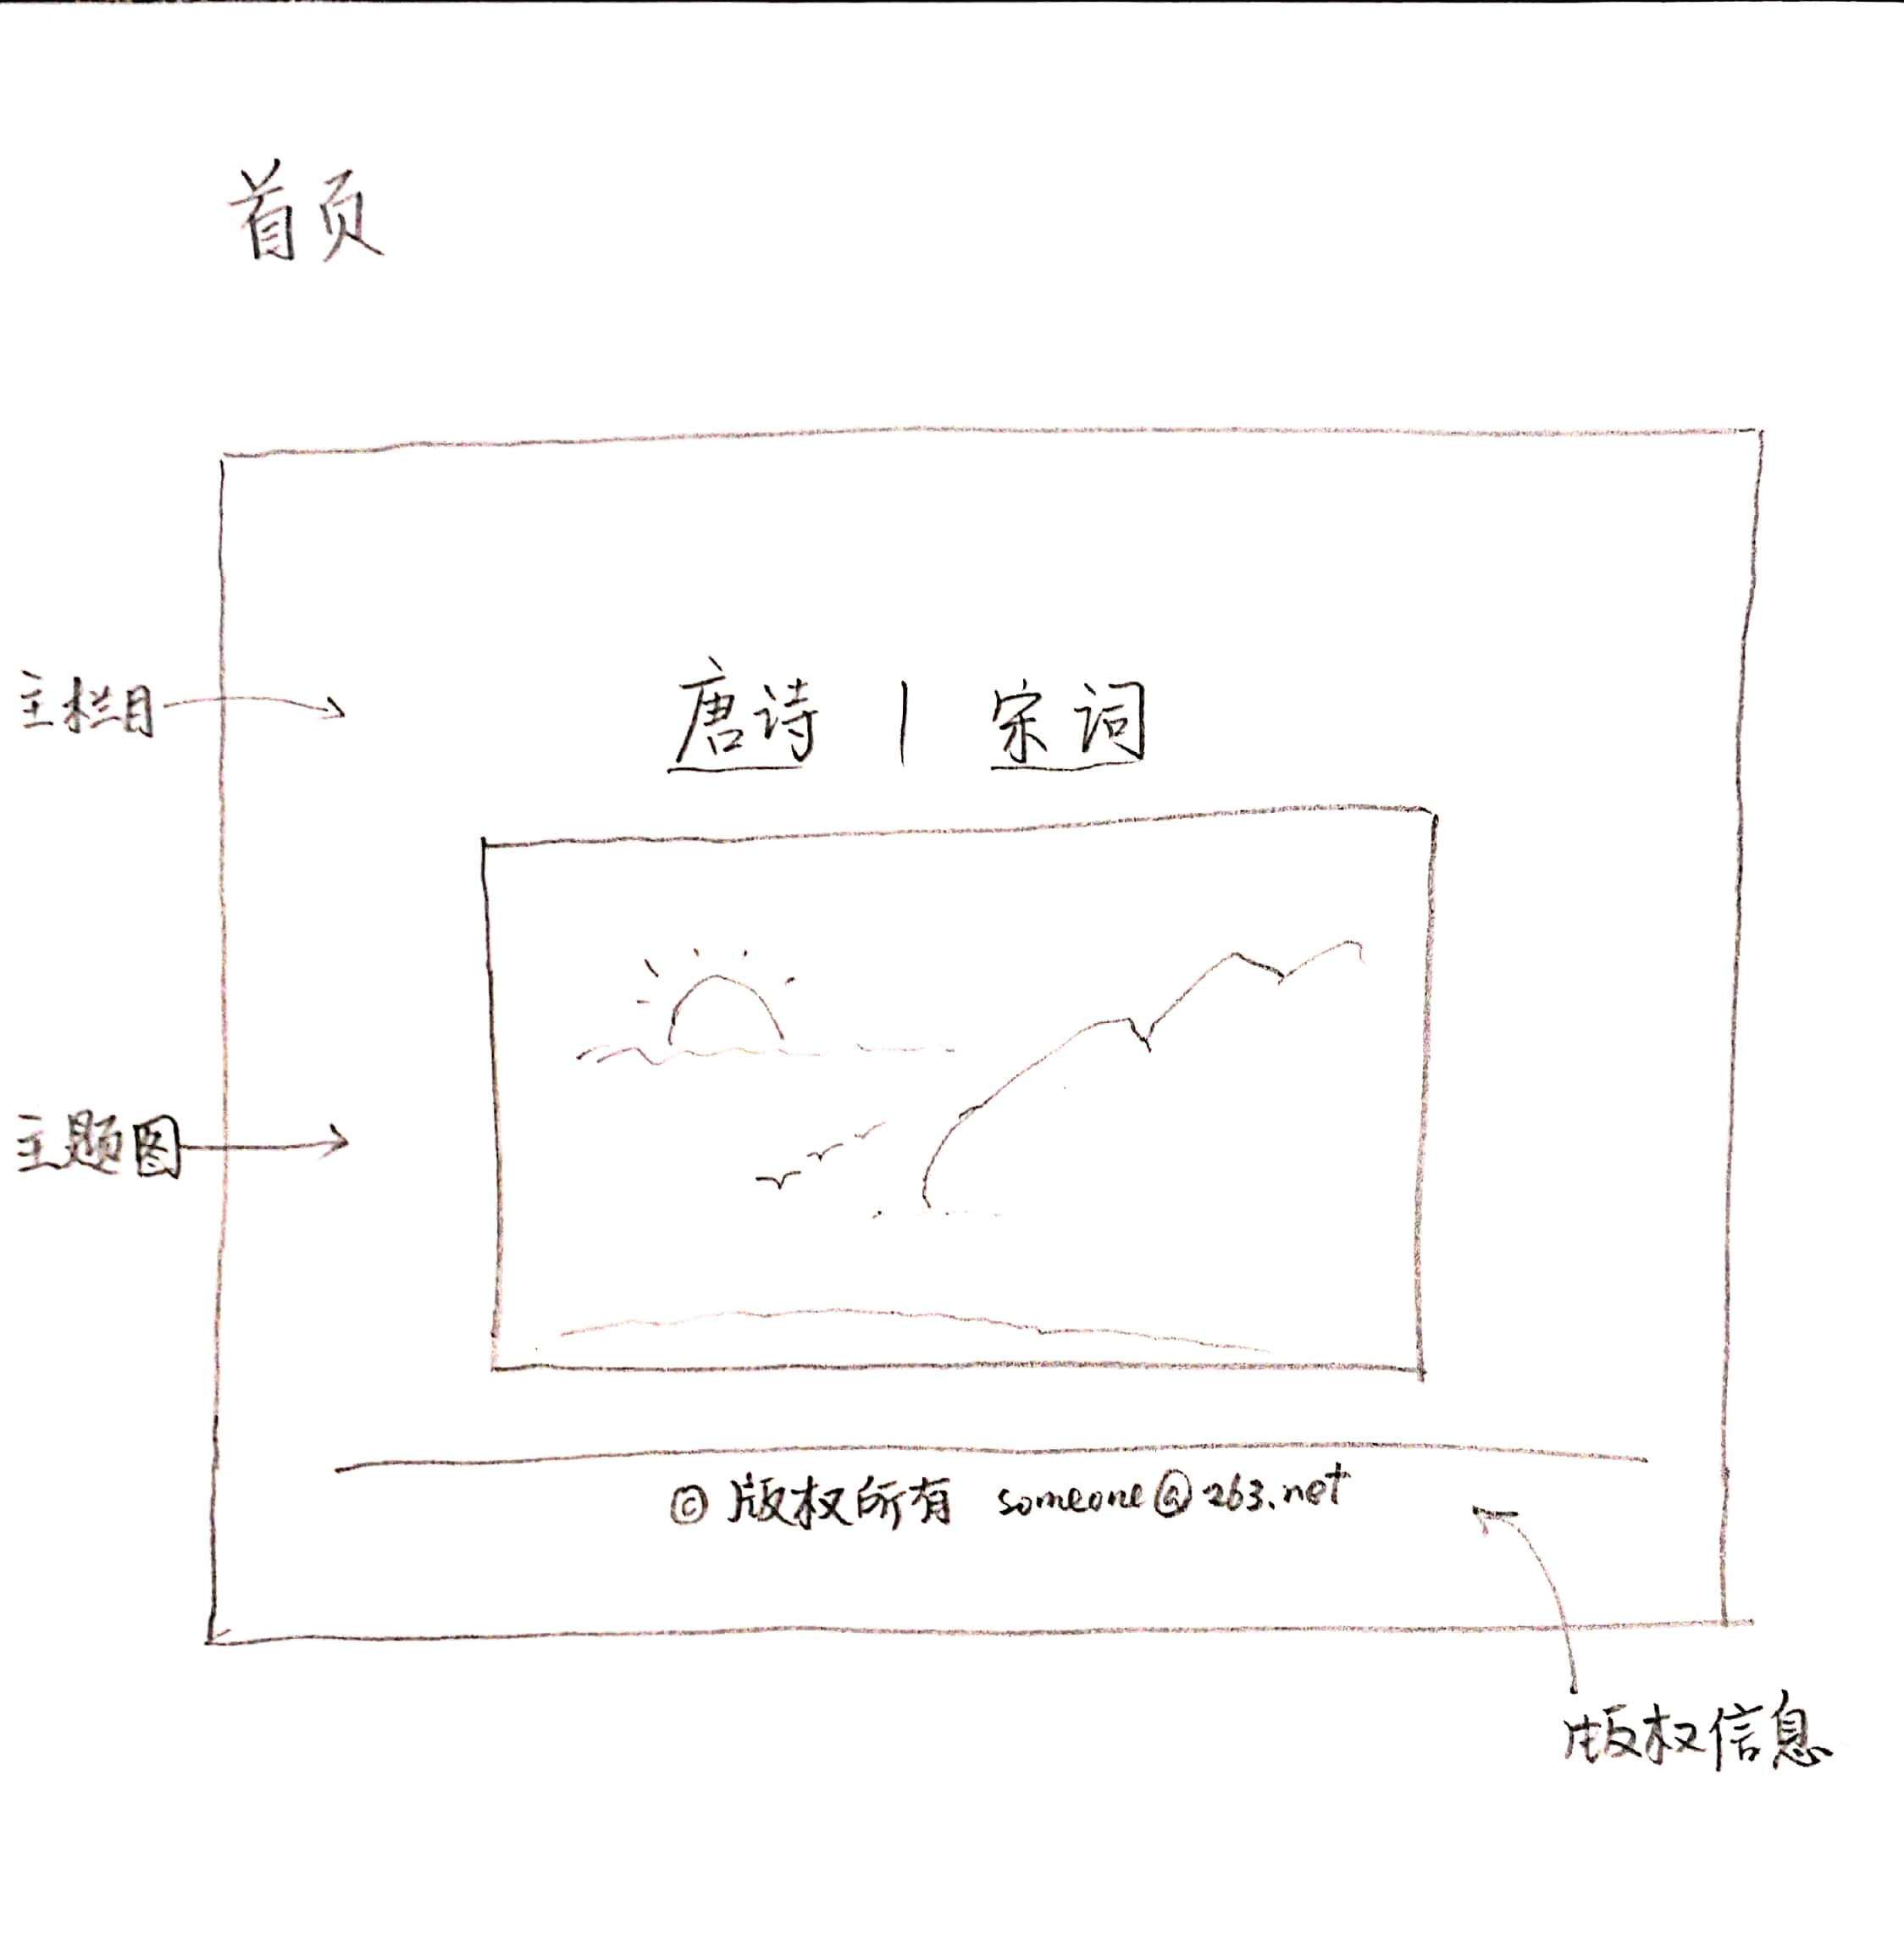 首页
主栏目
唐诗 | 宋词
主题图
© 版权所有 someone@263.net
版权信息